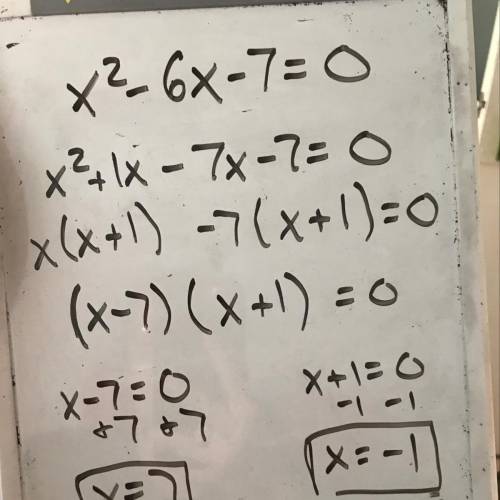 x²-6x-7=0
x²+1x-7x-7=0
x(x+1) -7(x+1)=0
(x-7)(x+1)=0
x-7=0
+7 +7
x=7
x+1=0
-1 -1
x=-1